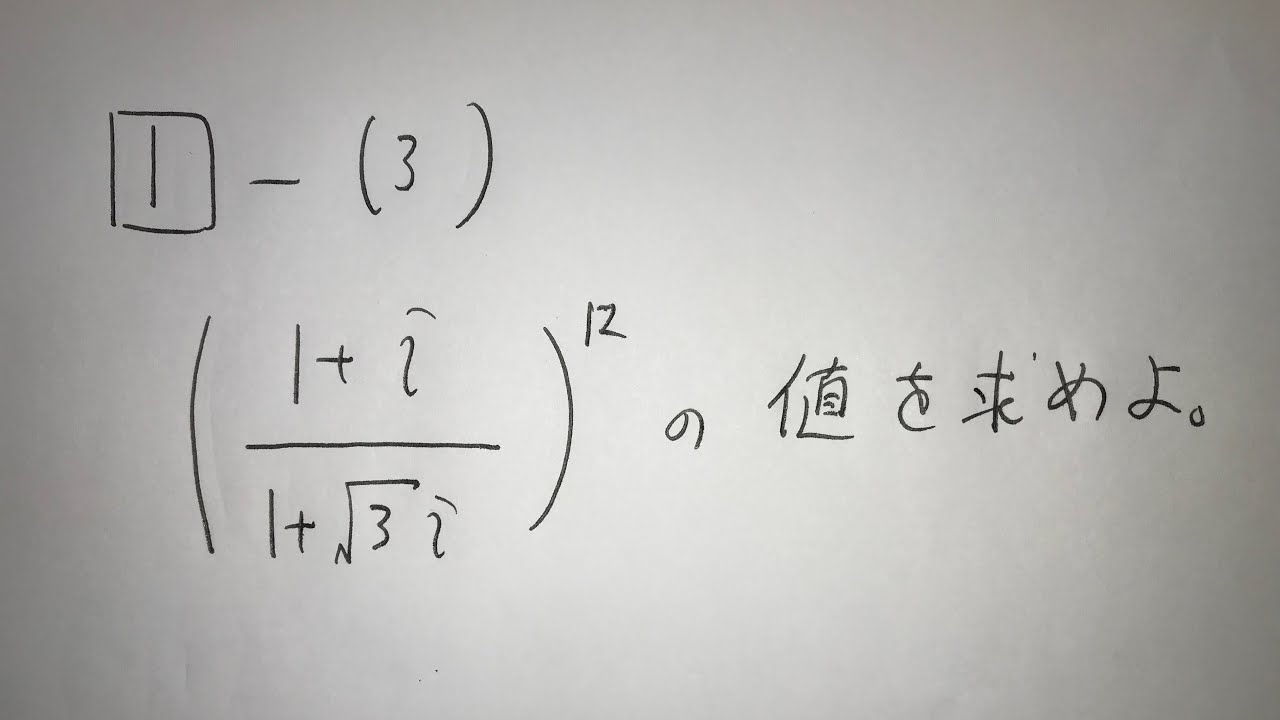 1 - (3)
(1+i / 1+√3i)^12 の値を求めよ。